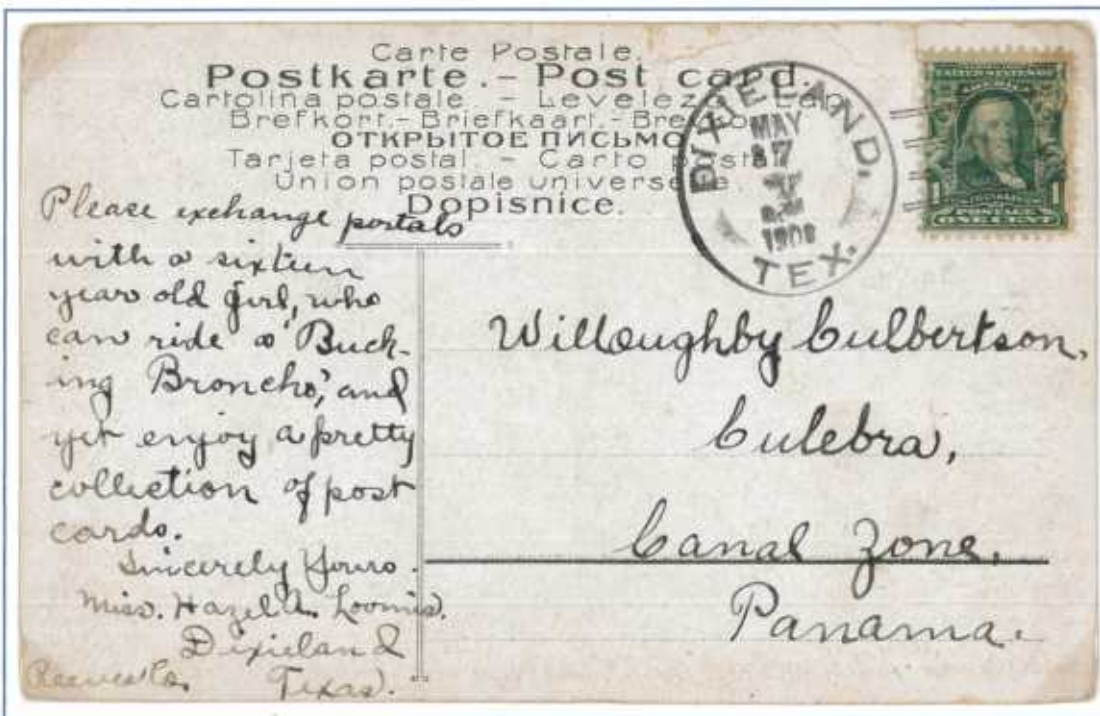 Carte Postale.
Postkarte. – Post card.
Cartolina postale. – Levelező-Lap.
Brefkort.– Briefkaart.– Brefkort.
ОТКРЫТОЕ ПИСЬМО
Tarjeta postal. – Carto postal.
Union postale universelle.
Dopisnice.
DIXIELAND,
MAY
1908
TEX.
POSTAGE
ONE CENT
Please exchange postals
with a sixteen
year old girl, who
can ride a "Buck-
ing Broncho," and
yet enjoy a pretty
collection of post
cards.
Sincerely Yours.
Miss. Hazel A. Loomis.
Dixieland
Reeves Co. Texas.
Willoughby Culbertson,
Culebra,
Canal Zone,
Panama.